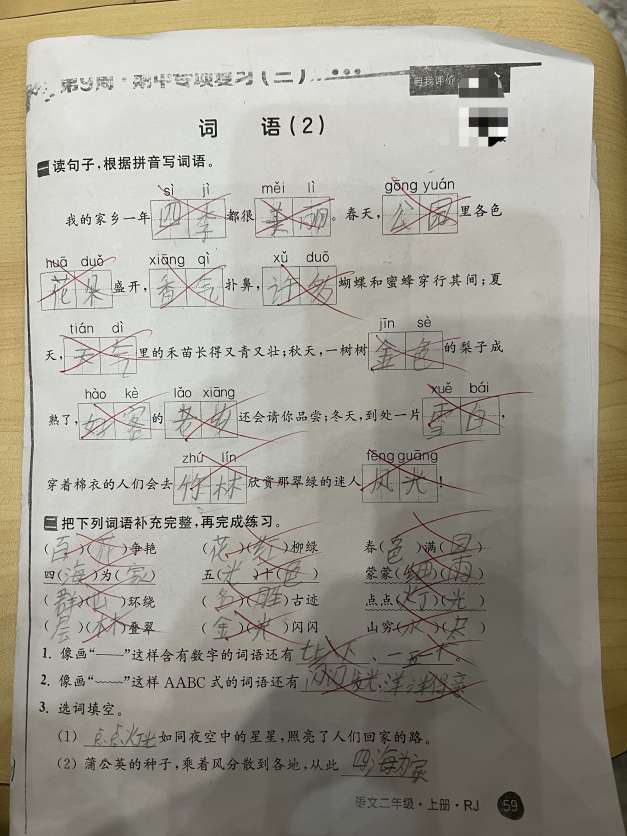 第9周·期中专项复习(二)
自我评价
词 语(2)
一 读句子,根据拼音写词语。
sì jì měi lì gōng yuán
我的家乡一年四季都很美丽。春天,公园里各色
huā duǒ xiāng qì xǔ duō
花朵盛开,香气扑鼻,许多蝴蝶和蜜蜂穿行其间;夏
tián dì jīn sè
天,天气里的禾苗长得又青又壮;秋天,一树树金色的梨子成
hào kè lǎo xiāng xuě bái
熟了,好客的老还会请你品尝;冬天,到处一片雪白,
zhú lín fēng guāng
穿着棉衣的人们会去竹林欣赏那翠绿的迷人风光!
二 把下列词语补充完整,再完成练习。
(百)()争艳 (花)(红)柳绿 春(色)满(园)
四(海)为(家) 五(光)十(色) 蒙蒙(细)(雨)
(群)(山)环绕 (名)(胜)古迹 点点(灯)(光)
(层)(林)叠翠 (金)(光)闪闪 山穷(水)()
1. 像画“——”这样含有数字的词语还有七上八下、一五一十。
2. 像画“﹏﹏”这样 AABC 式的词语还有闪闪发光、洋洋得意
3. 选词填空。
(1) 点点灯光如同夜空中的星星,照亮了人们回家的路。
(2) 蒲公英的种子,乘着风分散到各地,从此四海为家
语文二年级·上册·RJ 59